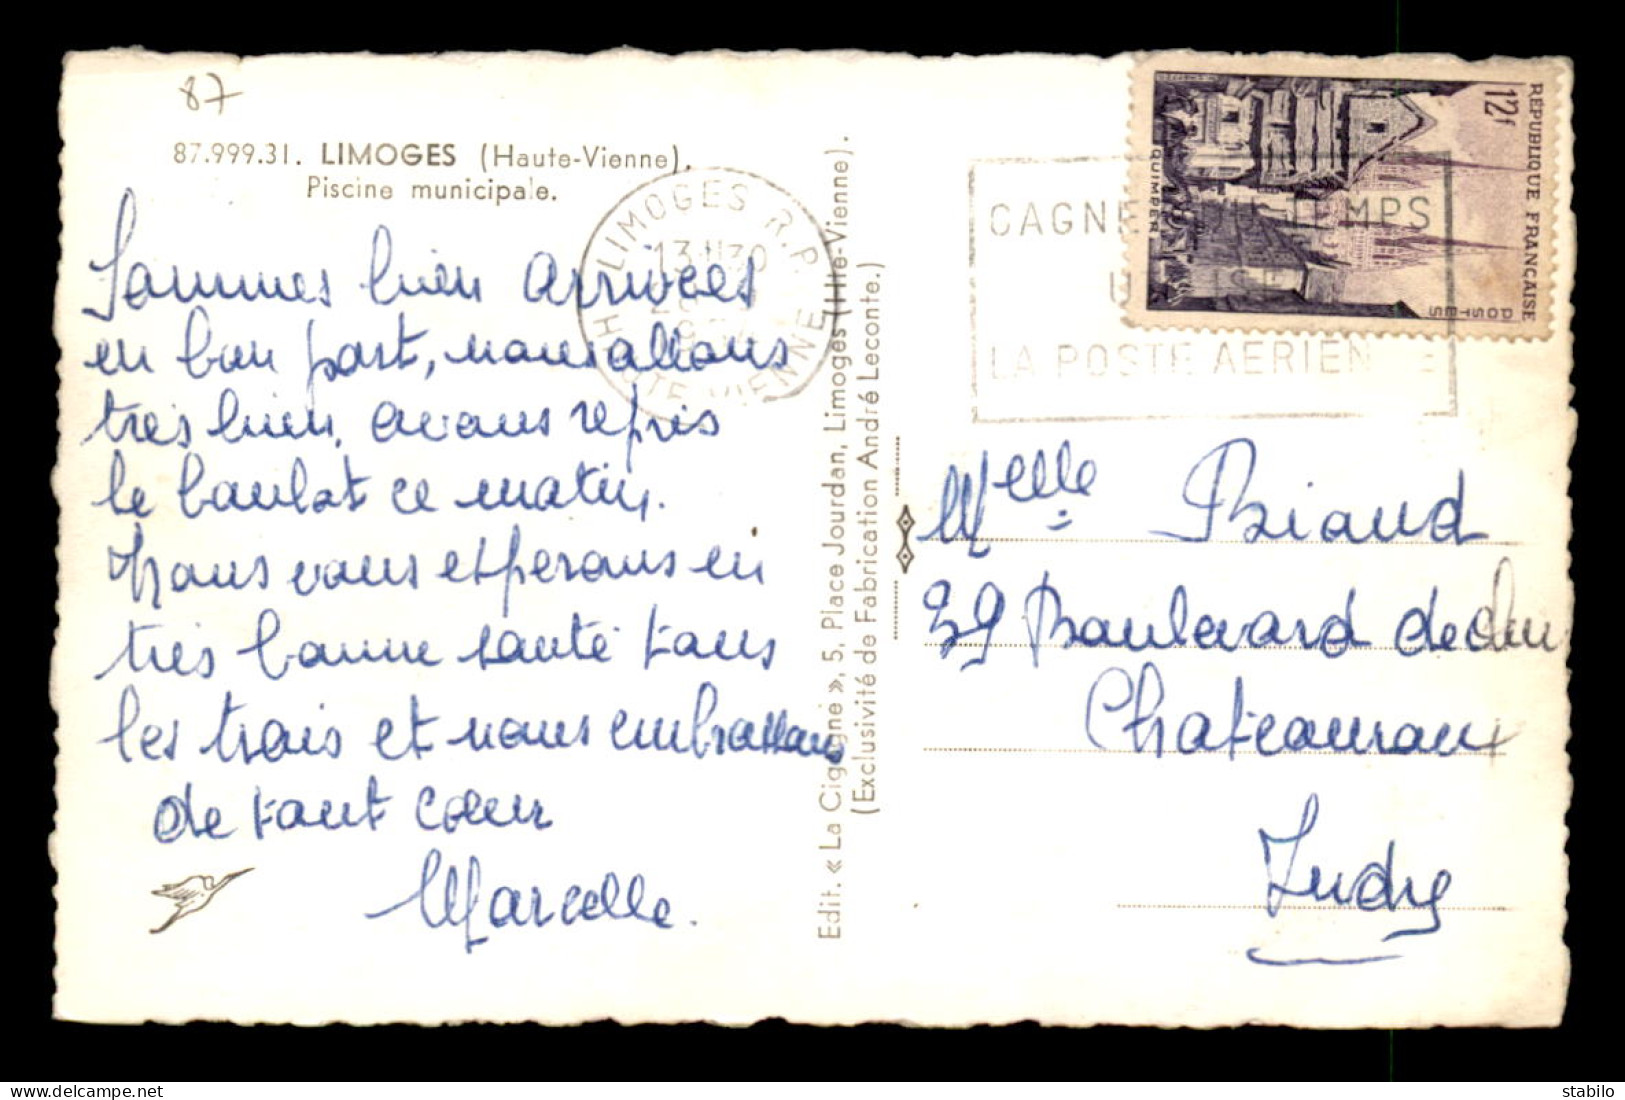 87
87.999.31. LIMOGES (Haute-Vienne).
Piscine municipale.
Sommes bien arrivées
en bon port, nous allons
très bien, avons repris
le boulot ce matin.
Nous vous espérons en
très bonne santé tous
les trois et nous embrassons
de tout cœur
Marcelle.
Edit. « La Cigogne », 5, Place Jourdan, Limoges (Hte-Vienne).
(Exclusivité de Fabrication André Leconte.)
LIMOGES R.P.
13H30
HAUTE-VIENNE
GAGNEZ DU TEMPS
LA POSTE AERIENNE
RÉPUBLIQUE FRANÇAISE
12f
POSTES
QUIMPER
Melle Biaud
39 Boulevard de
Chateauroux
Indre
stabilo